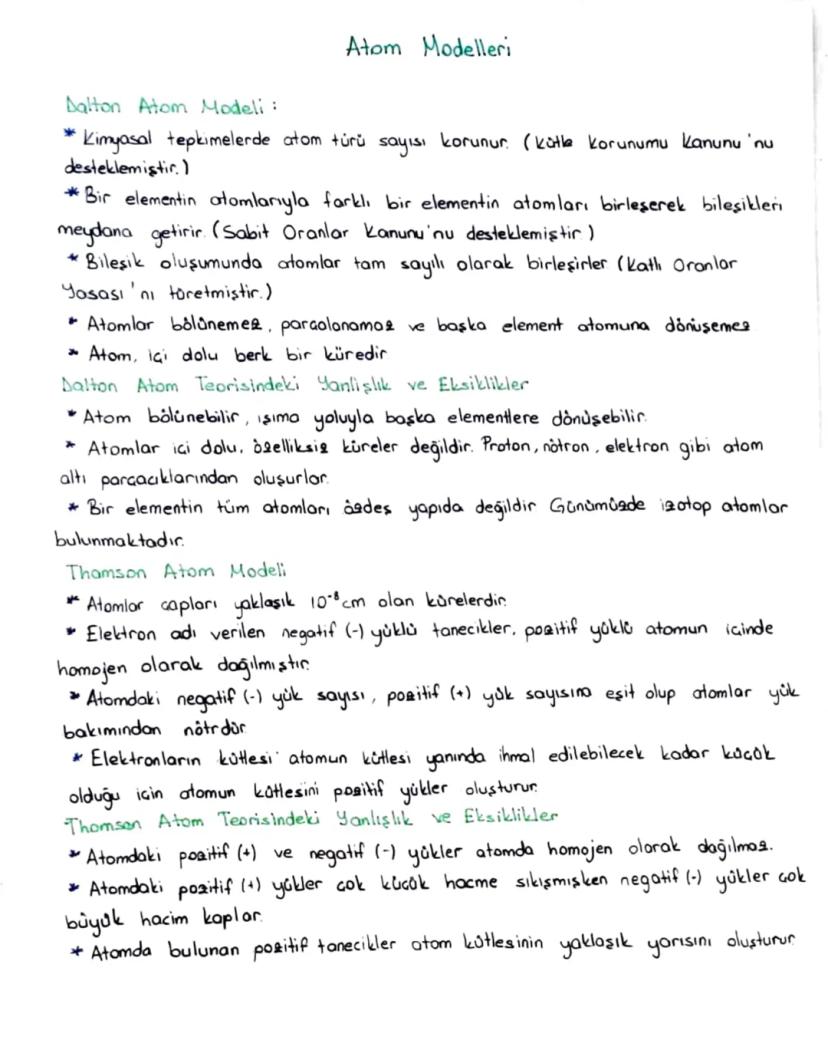 Atom Modelleri
Dalton Atom Modeli :
* Kimyasal tepkimelerde atom türü sayısı korunur. (Kütle Korunumu Kanunu'nu
desteklemiştir.)
* Bir elementin atomlarıyla farklı bir elementin atomları birleşerek bileşikleri
meydana getirir. (Sabit Oranlar Kanunu'nu desteklemiştir.)
* Bileşik oluşumunda atomlar tam sayılı olarak birleşirler (Katlı Oranlar
Yasası'nı türetmiştir.)
* Atomlar bölünemez, parçalanamaz ve başka element atomuna dönüşemez
* Atom, içi dolu berk bir küredir
Dalton Atom Teorisindeki Yanlışlık ve Eksiklikler
* Atom bölünebilir, ışıma yoluyla başka elementlere dönüşebilir.
* Atomlar içi dolu, özelliksiz küreler değildir. Proton, nötron, elektron gibi atom
altı parçacıklarından oluşurlar.
* Bir elementin tüm atomları özdeş yapıda değildir Günümüzde izotop atomlar
bulunmaktadır.
Thomson Atom Modeli
* Atomlar çapları yaklaşık 10⁻⁸ cm olan kürelerdir.
* Elektron adı verilen negatif (-) yüklü tanecikler, pozitif yüklü atomun içinde
homojen olarak dağılmıştır.
* Atomdaki negatif (-) yük sayısı, pozitif (+) yük sayısına eşit olup atomlar yük
bakımından nötrdür
* Elektronların kütlesi atomun kütlesi yanında ihmal edilebilecek kadar küçük
olduğu için atomun kütlesini pozitif yükler oluşturur.
Thomson Atom Teorisindeki Yanlışlık ve Eksiklikler
* Atomdaki pozitif (+) ve negatif (-) yükler atomda homojen olarak dağılmaz.
* Atomdaki pozitif (+) yükler çok küçük hacme sıkışmışken negatif (-) yükler çok
büyük hacim kaplar.
* Atomda bulunan pozitif tanecikler atom kütlesinin yaklaşık yarısını oluşturur